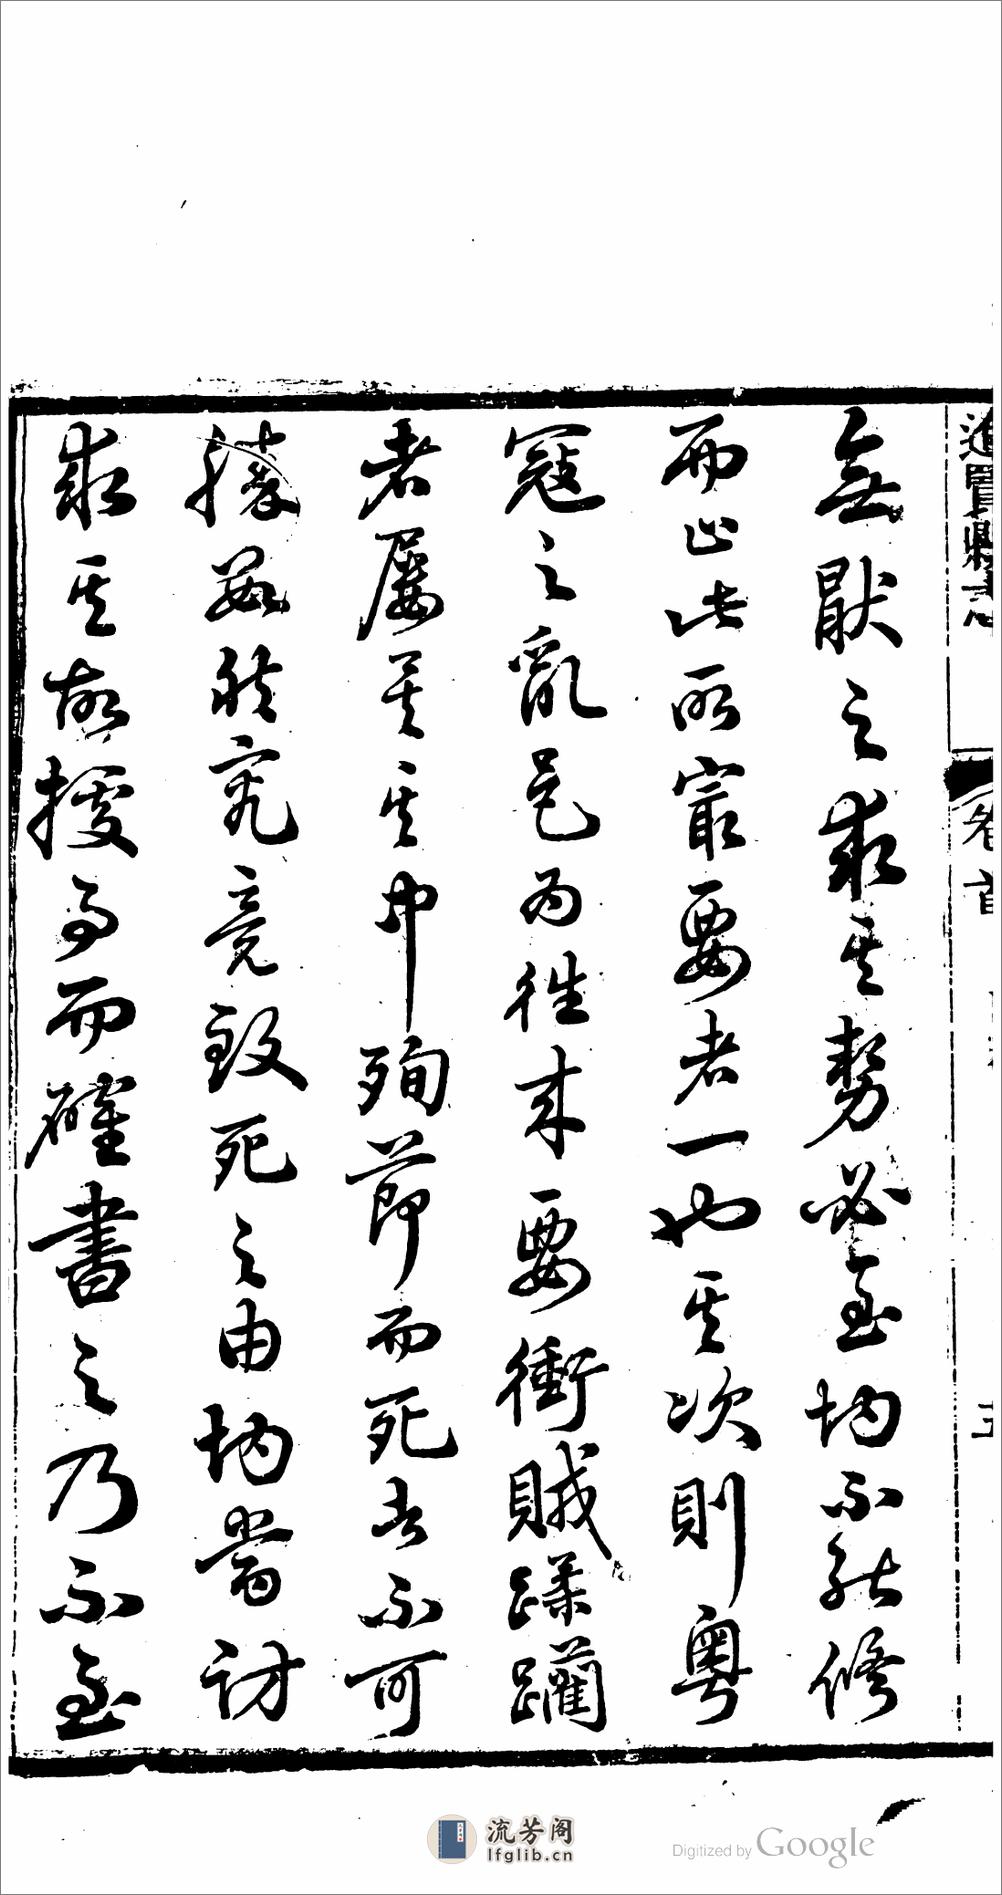 進賢縣志
卷首
無厭之求其勢必至均不能修
而止此所最要者一也其次則粵
寇之亂邑為徃来要衝賊蹂躪
者屢矣其中殉節而死者不可
勝數然究竟致死之由均當訪
求其故援而確書之乃不至
流芳阁
lfglib.cn
Digitized by Google